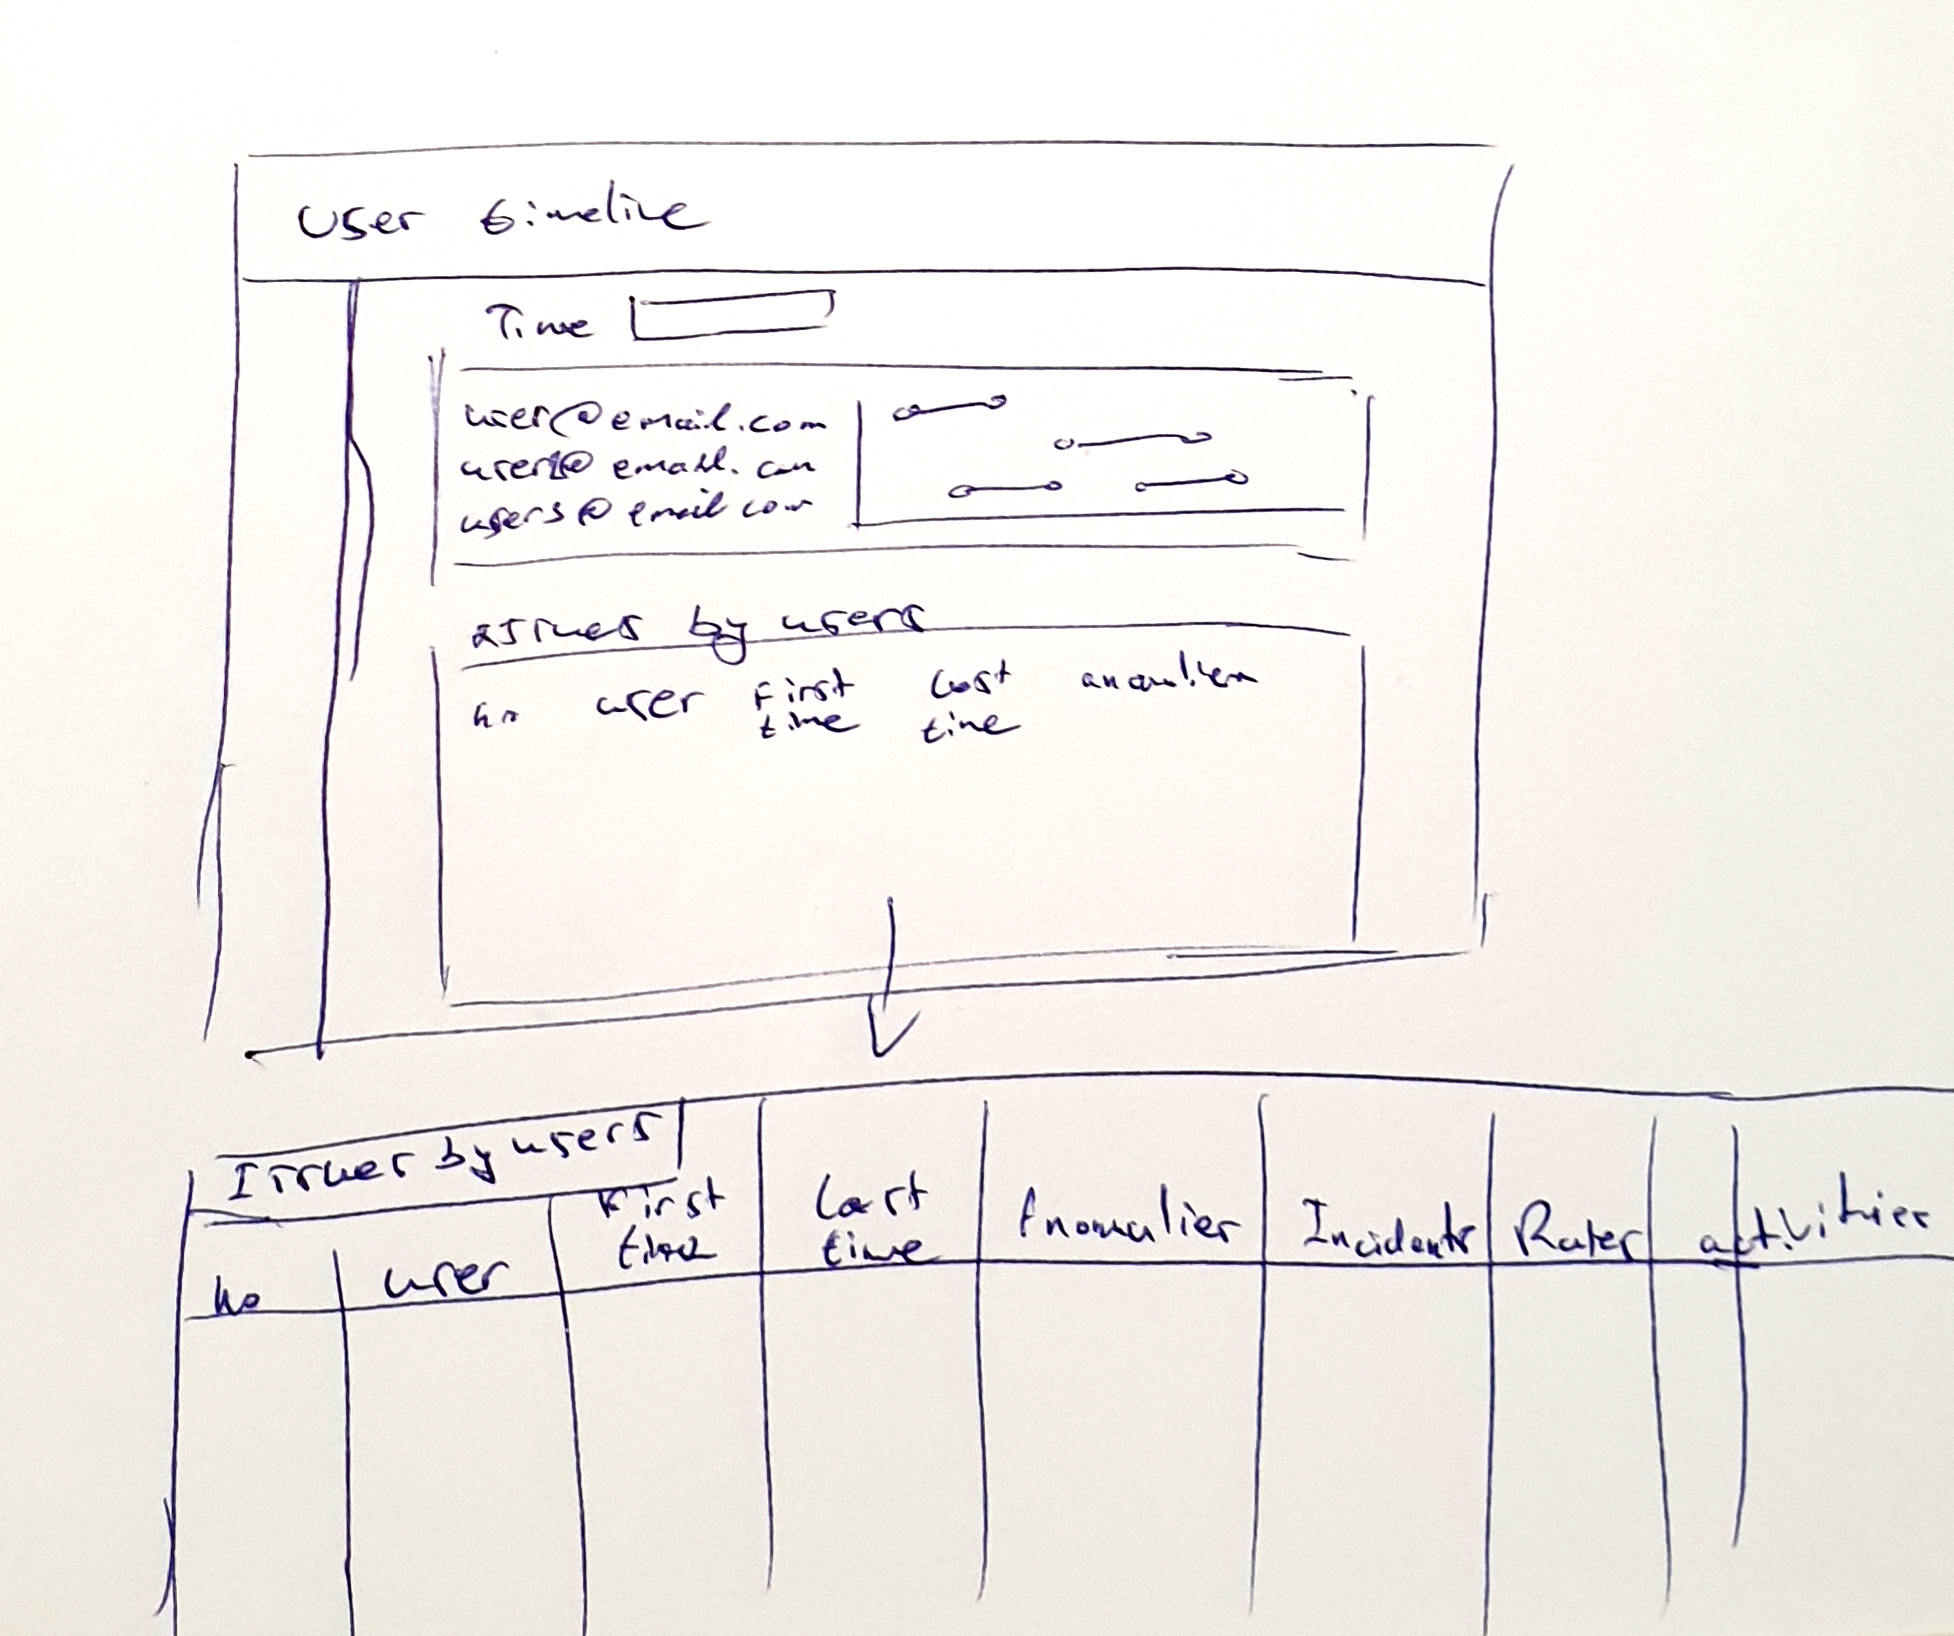 User timeline
Time
user@email.com
user2@email.com
user3@email com
Issues by users
no user First time Last time anomalies
Issues by users
no user First time Last time Anomalies Incidents Rates activities